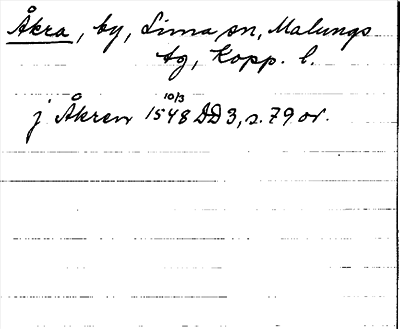 Åkra, by, Lima sn, Malungs
tg, Kopp. l.
10/3
j Åkren 1548 DD 3, s. 79 or.